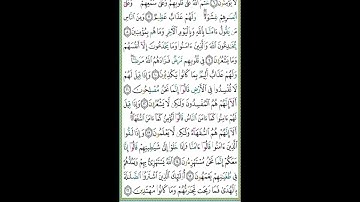 لَا يُؤْمِنُونَ ۝٦ خَتَمَ اللَّهُ عَلَىٰ قُلُوبِهِمْ وَعَلَىٰ سَمْعِهِمْ وَعَلَىٰ
أَبْصَارِهِمْ غِشَاوَةٌ وَلَهُمْ عَذَابٌ عَظِيمٌ ۝٧ وَمِنَ النَّاسِ
مَن يَقُولُ ءَامَنَّا بِاللَّهِ وَبِالْيَوْمِ الْآخِرِ وَمَا هُم بِمُؤْمِنِينَ ۝٨
يُخَادِعُونَ اللَّهَ وَالَّذِينَ ءَامَنُوا وَمَا يَخْدَعُونَ إِلَّا أَنفُسَهُمْ
وَمَا يَشْعُرُونَ ۝٩ فِي قُلُوبِهِم مَّرَضٌ فَزَادَهُمُ اللَّهُ مَرَضًا
وَلَهُمْ عَذَابٌ أَلِيمٌ بِمَا كَانُوا يَكْذِبُونَ ۝١٠ وَإِذَا قِيلَ لَهُمْ
لَا تُفْسِدُوا فِي الْأَرْضِ قَالُوا إِنَّمَا نَحْنُ مُصْلِحُونَ ۝١١
أَلَا إِنَّهُمْ هُمُ الْمُفْسِدُونَ وَلَٰكِن لَّا يَشْعُرُونَ ۝١٢ وَإِذَا قِيلَ
لَهُمْ ءَامِنُوا كَمَا ءَامَنَ النَّاسُ قَالُوا أَنُؤْمِنُ كَمَا ءَامَنَ السُّفَهَاءُ
أَلَا إِنَّهُمْ هُمُ السُّفَهَاءُ وَلَٰكِن لَّا يَعْلَمُونَ ۝١٣ وَإِذَا لَقُوا
الَّذِينَ ءَامَنُوا قَالُوا ءَامَنَّا وَإِذَا خَلَوْا إِلَىٰ شَيَاطِينِهِمْ قَالُوا إِنَّا
مَعَكُمْ إِنَّمَا نَحْنُ مُسْتَهْزِءُونَ ۝١٤ اللَّهُ يَسْتَهْزِئُ بِهِمْ وَيَمُدُّهُمْ
فِي طُغْيَانِهِمْ يَعْمَهُونَ ۝١٥ أُولَٰئِكَ الَّذِينَ اشْتَرَوُا الضَّلَالَةَ
بِالْهُدَىٰ فَمَا رَبِحَت تِّجَارَتُهُمْ وَمَا كَانُوا مُهْتَدِينَ ۝١٦